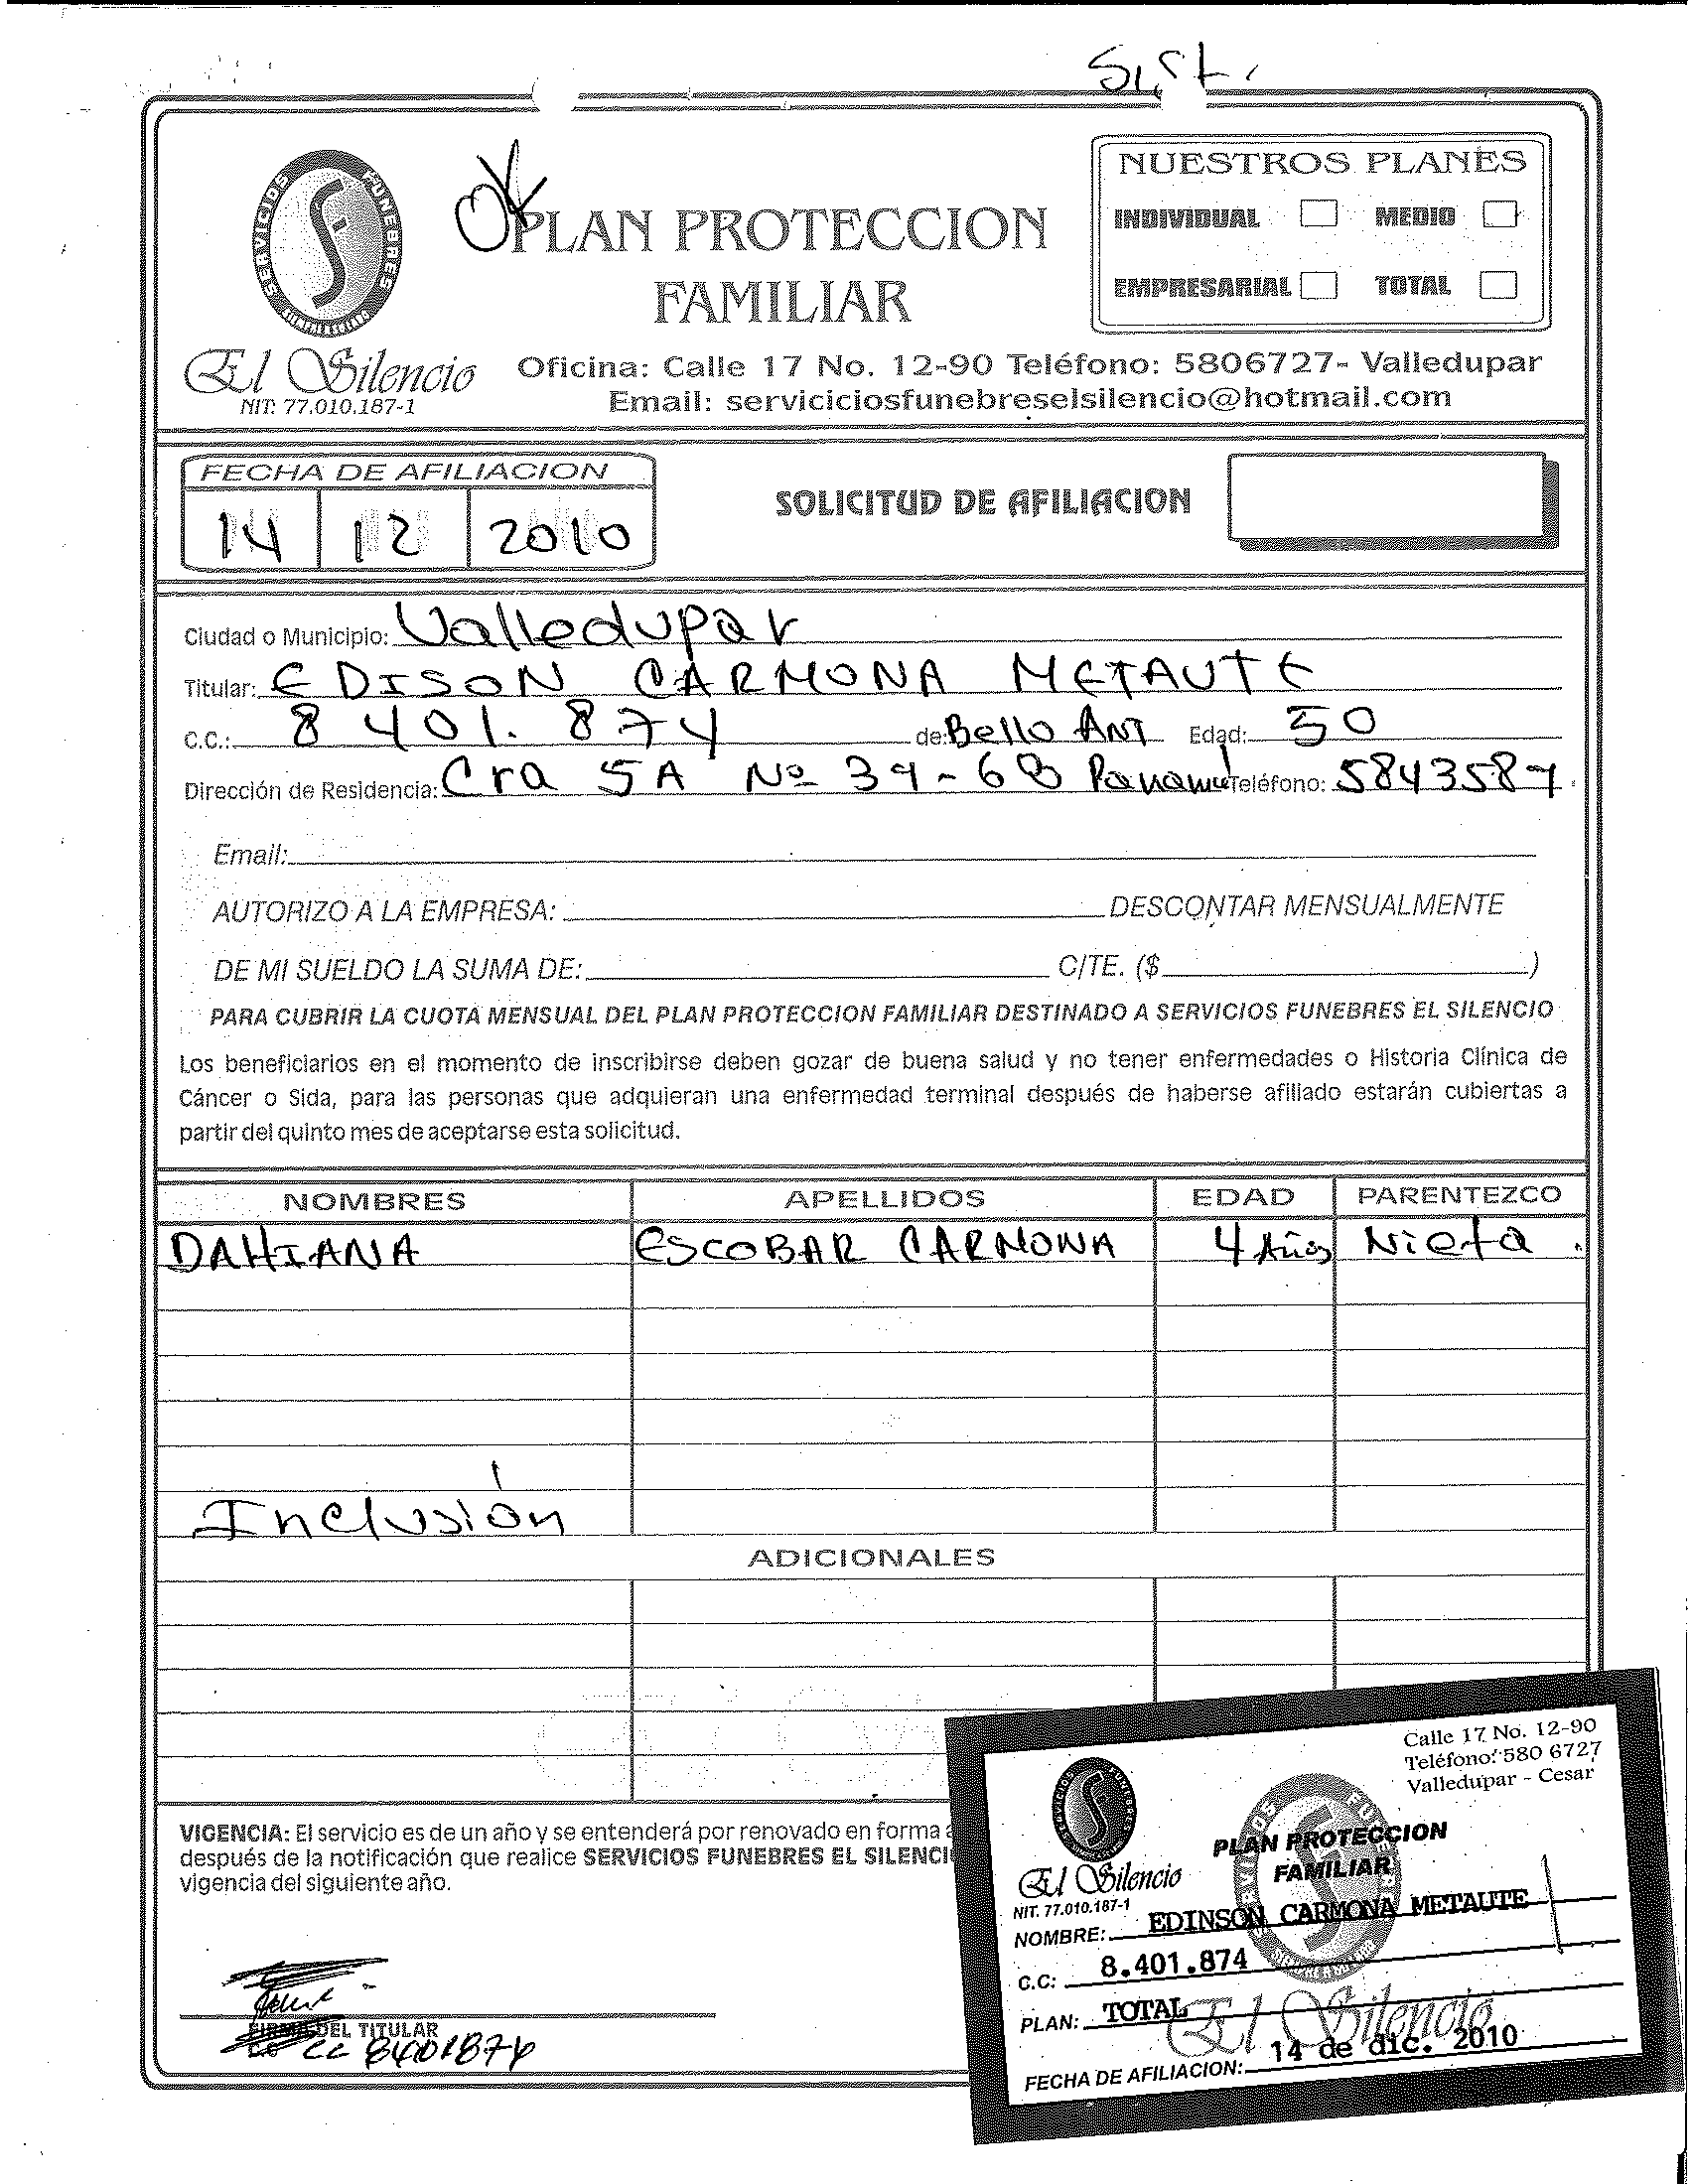 Sist.
NUESTROS PLANES
INDIVIDUAL MEDIO
EMPRESARIAL TOTAL
SERVICIOS FUNEBRES
OK
PLAN PROTECCION
FAMILIAR
El Silencio
NIT: 77.010.187-1
Oficina: Calle 17 No. 12-90 Teléfono: 5806727- Valledupar
Email: serviciciosfunebreselsilencio@hotmail.com
FECHA DE AFILIACION
14 12 2010
SOLICITUD DE AFILIACION
Ciudad o Municipio: Valledupar
Titular: EDISON CARMONA METAUTE
C.C.: 8 401. 874 de: Bello ANT Edad: 50
Dirección de Residencia: Cra 5A Nº 39-68 Panamá Teléfono: 5843587.
Email:
AUTORIZO A LA EMPRESA: DESCONTAR MENSUALMENTE
DE MI SUELDO LA SUMA DE: C/TE. ($ )
PARA CUBRIR LA CUOTA MENSUAL DEL PLAN PROTECCION FAMILIAR DESTINADO A SERVICIOS FUNEBRES EL SILENCIO
Los beneficiarios en el momento de inscribirse deben gozar de buena salud y no tener enfermedades o Historia Clínica de
Cáncer o Sida, para las personas que adquieran una enfermedad terminal después de haberse afiliado estarán cubiertas a
partir del quinto mes de aceptarse esta solicitud.
NOMBRES APELLIDOS EDAD PARENTEZCO
DAHIANA ESCOBAR CARMONA 4 Años Nieta.
Inclusión
ADICIONALES
VIGENCIA: El servicio es de un año y se entenderá por renovado en forma
después de la notificación que realice SERVICIOS FUNEBRES EL SILENCI
vigencia del siguiente año.
FIRMA DEL TITULAR
CC 8401874
Calle 17 No. 12-90
Teléfono: 580 6727
Valledupar - Cesar
SERVICIOS FUNEBRES
El Silencio
NIT. 77.010.187-1
PLAN PROTECCION
FAMILIAR
NOMBRE: EDINSON CARMONA METAUTE
C.C: 8.401.874
PLAN: TOTAL
El Silencio
FECHA DE AFILIACION: 14 de dic. 2010